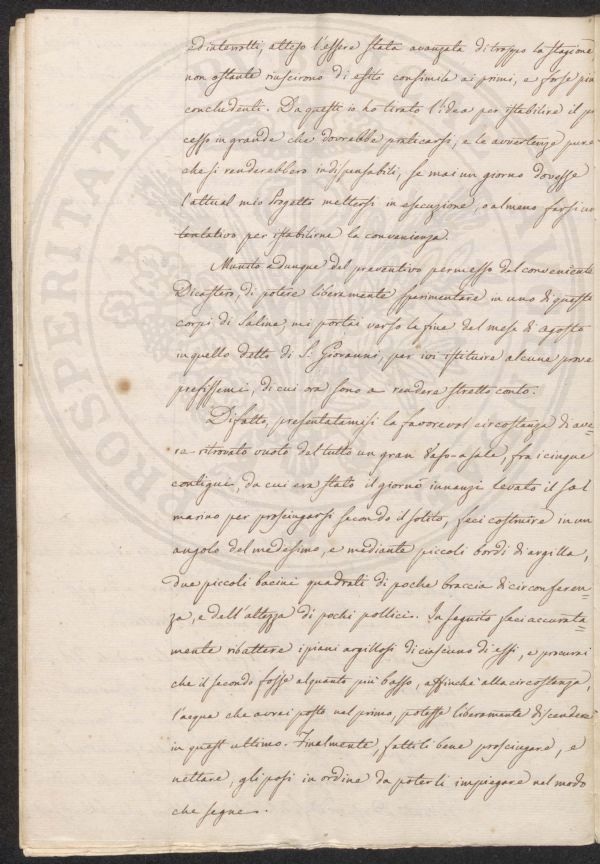 ed interrotti, atteso l'essere stata avanzata di troppo la stagione
non ostante riuscirono di esito consimile ai primi, e forse più
concludenti. Da questi io ho tirato l'idea per istabilire il pro
cesso in grande che dovrebbe praticarsi, e le avvertenze pure
che si renderebbero indispensabili, se mai un giorno dovesse
l'attual mio Progetto mettersi in esecuzione, o almeno farsi un
tentativo per istabilirne la convenienza.
Munito adunque del preventivo permesso del conveniente
Dicastero, di potere liberamente sperimentare in uno di queste
corpi di Saline, mi portai verso la fine del mese di agosto
in quello detto di S: Giovanni, per ivi istituire alcune prove
prefissemi, di cui ora sono a rendere stretto conto.
Difatto, presentatamisi la favorevol circostanza di ave=
re ritrovato vuoto del tutto un gran Vaso-a sale, fra i cinque
contigue, da cui era stato il giorno innanzi levato il sal
marino per prosciugarsi secondo il solito, feci costruire in un
angolo del medesimo, e mediante piccoli bordi di argilla,
due piccoli bacini quadrati di poche braccia di circonferen=
za, e dell'altezza di pochi pollici. In seguito feci accurata=
mente ribattere i piani argillosi di ciascuno di essi, e procurai
che il secondo fosse alquanto più basso, affinchè alla circostanza,
l'acqua che avrei posto nel primo, potesse liberamente discendere
in quest' ultimo. Finalmente, fattili bene prosciugare, e
nettare, gli posi in ordine da poterli impiegare nel modo
che segue.
PROSPERITATI PUBLICAE